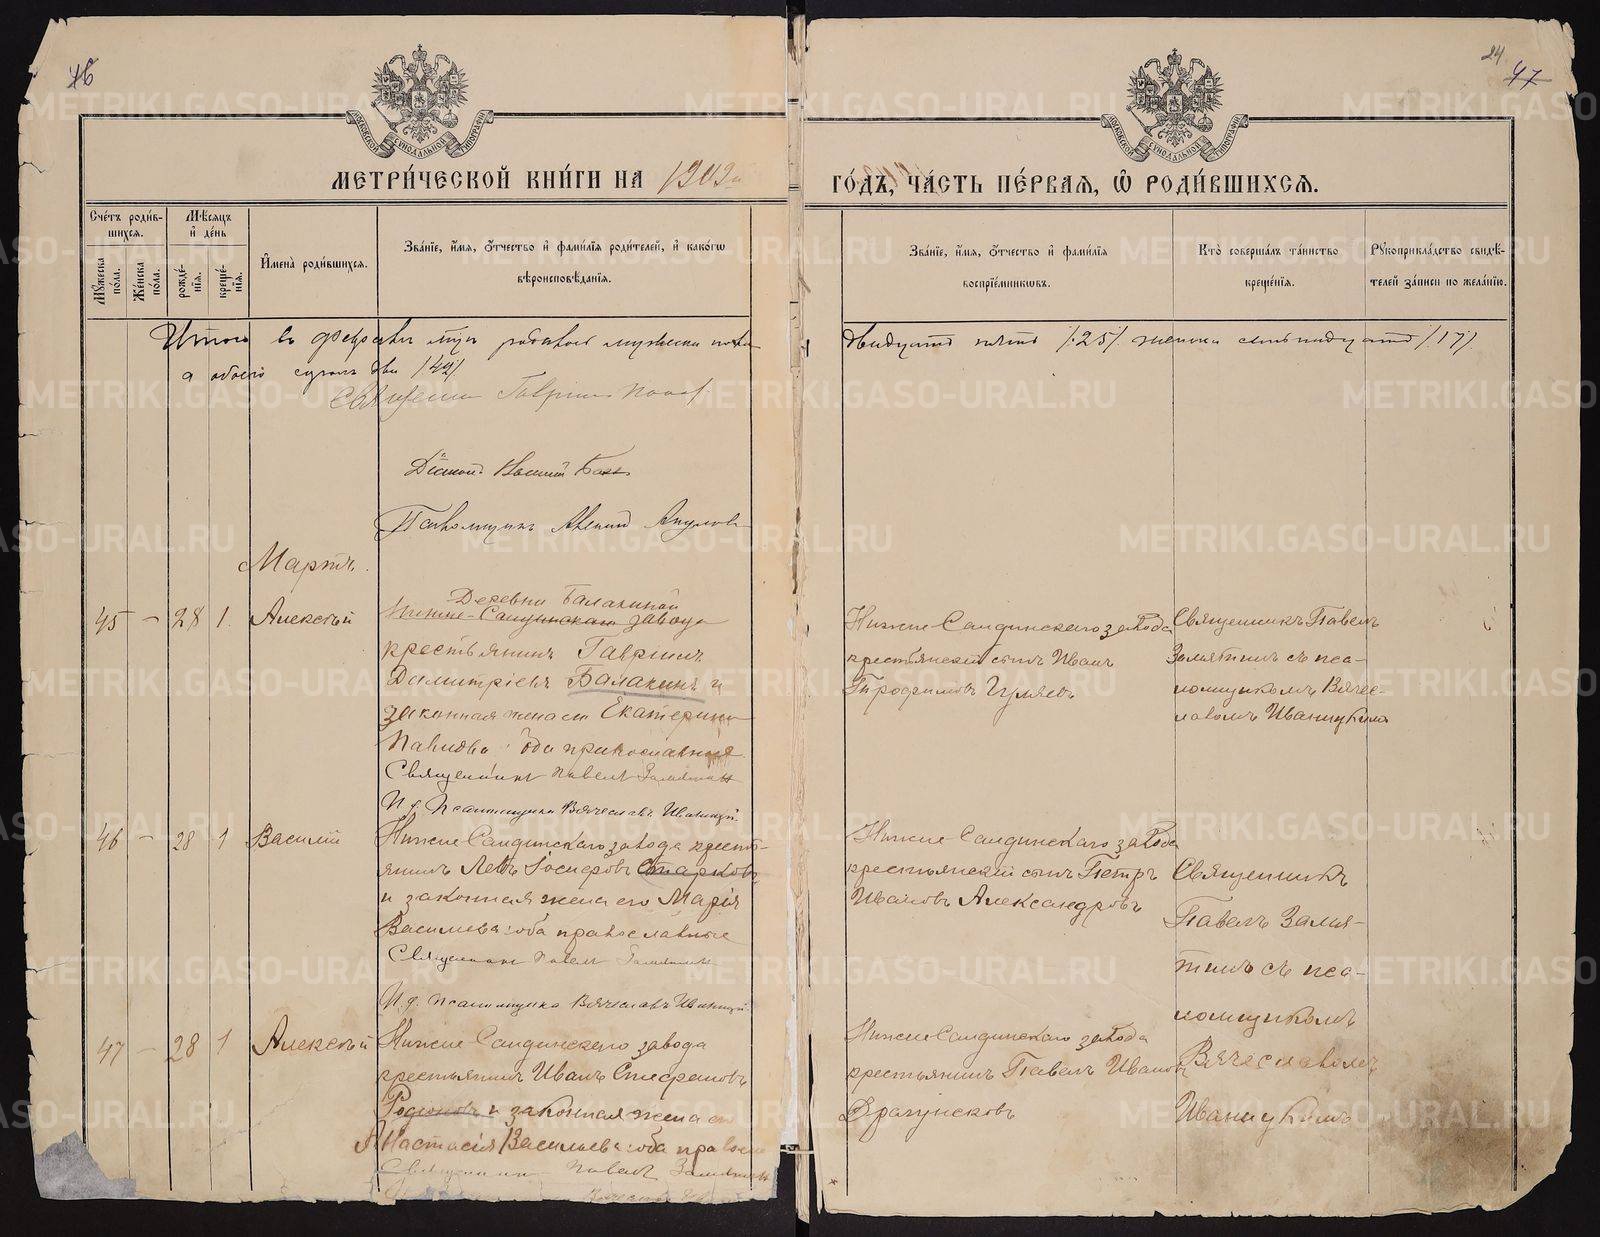 46
24
47
МОСКОВСКОЙ СѴНОДАЛЬНОЙ ТИПОГРАФІИ
МОСКОВСКОЙ СѴНОДАЛЬНОЙ ТИПОГРАФІИ
МЕТРИ́ЧЕСКОЙ КНИ́ГИ НА 1909
ГО́ДЪ, ЧА́СТЬ ПЕ́РВАЯ, Ѡ РОДИ́ВШИХСЯ.
Сче́тъ роди́вшихся.
Мѣ́сяцъ и де́нь
Мꙋ́жеска по́ла.
Же́нска по́ла.
рожде́нїя.
креще́нїя.
И҆мена̀ роди́вшихся.
Зва́нїе, и҆́мя, ѻ҆́тчество и҆ фами́лїя роди́телей, и҆ како́гѡ вѣроисповѣ́данїя.
Зва́нїе, и҆́мя, ѻ҆́тчество и҆ фами́лїя воспрїе́мникѡвъ.
Кто̀ соверша́лъ та́инство креще́нїя.
Рꙋкоприкла́дство свидѣ́телей за́писи по жела́нїю.
Итого въ февралѣ м-цѣ родилось мужеска пола
двадцать пять /25/ женска семнадцать /17/
а обоего сорокъ два /42/
Священникъ Гавріилъ Попов
Діаконъ
Псаломщикъ
Мартъ.
45 – 28 1. Алексѣй
Деревни Балакиной
Нижне-Салдинскаго завода
крестьянинъ Гавріилъ
Димитріевъ Балакинъ и
законная жена его Екатерина
Павлова оба православные
Священникъ Павелъ Замятинъ
И. д. Псаломщика Вячеславъ Иваницкій
Нижне Салдинскаго завода
крестьянскій сынъ Иванъ
Трофимовъ Гуляевъ
Священникъ Павелъ
Замятинъ съ пса-
ломщикомъ Вячес-
лавомъ Иваницкимъ
46 – 28 1 Василій
Нижне Салдинскаго завода кресть-
янинъ Левъ Іосифовъ Старковъ
и законная жена его Марія
Васильева оба православные
Священникъ Павелъ Замятинъ
И. д. псаломщика Вячеславъ Иваницкій
Нижне Салдинскаго завода
крестьянскій сынъ Петръ
Ивановъ Александровъ
Священникъ
Павелъ Замя-
тинъ съ пса-
ломщикомъ
Вячеславомъ
Иваницкимъ
47 – 28 1 Алексѣй
Нижне Салдинскаго завода
крестьянинъ Иванъ Стефановъ
Родионовъ и законная жена его
Анастасія Васильева оба правосл
Священникъ Павелъ Замятинъ
Нижне Салдинскаго завода
крестьянинъ Павелъ Ивановъ
Драгунсковъ
METRIKI.GASO-URAL.RU